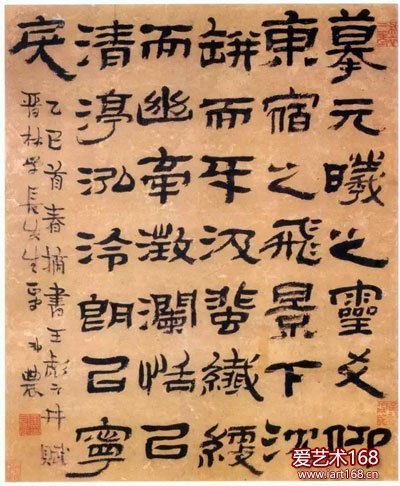 摹元曦之靈爻仰
東宿之飛景下沈
缾而汲蜚纖綆
而幽牽澂瀾恬已
清渟泓泠朗已寧
戾
乙巳首春摘書王彪之井賦
晉林學長先生正 農
爱艺术168
www.iart168.cn